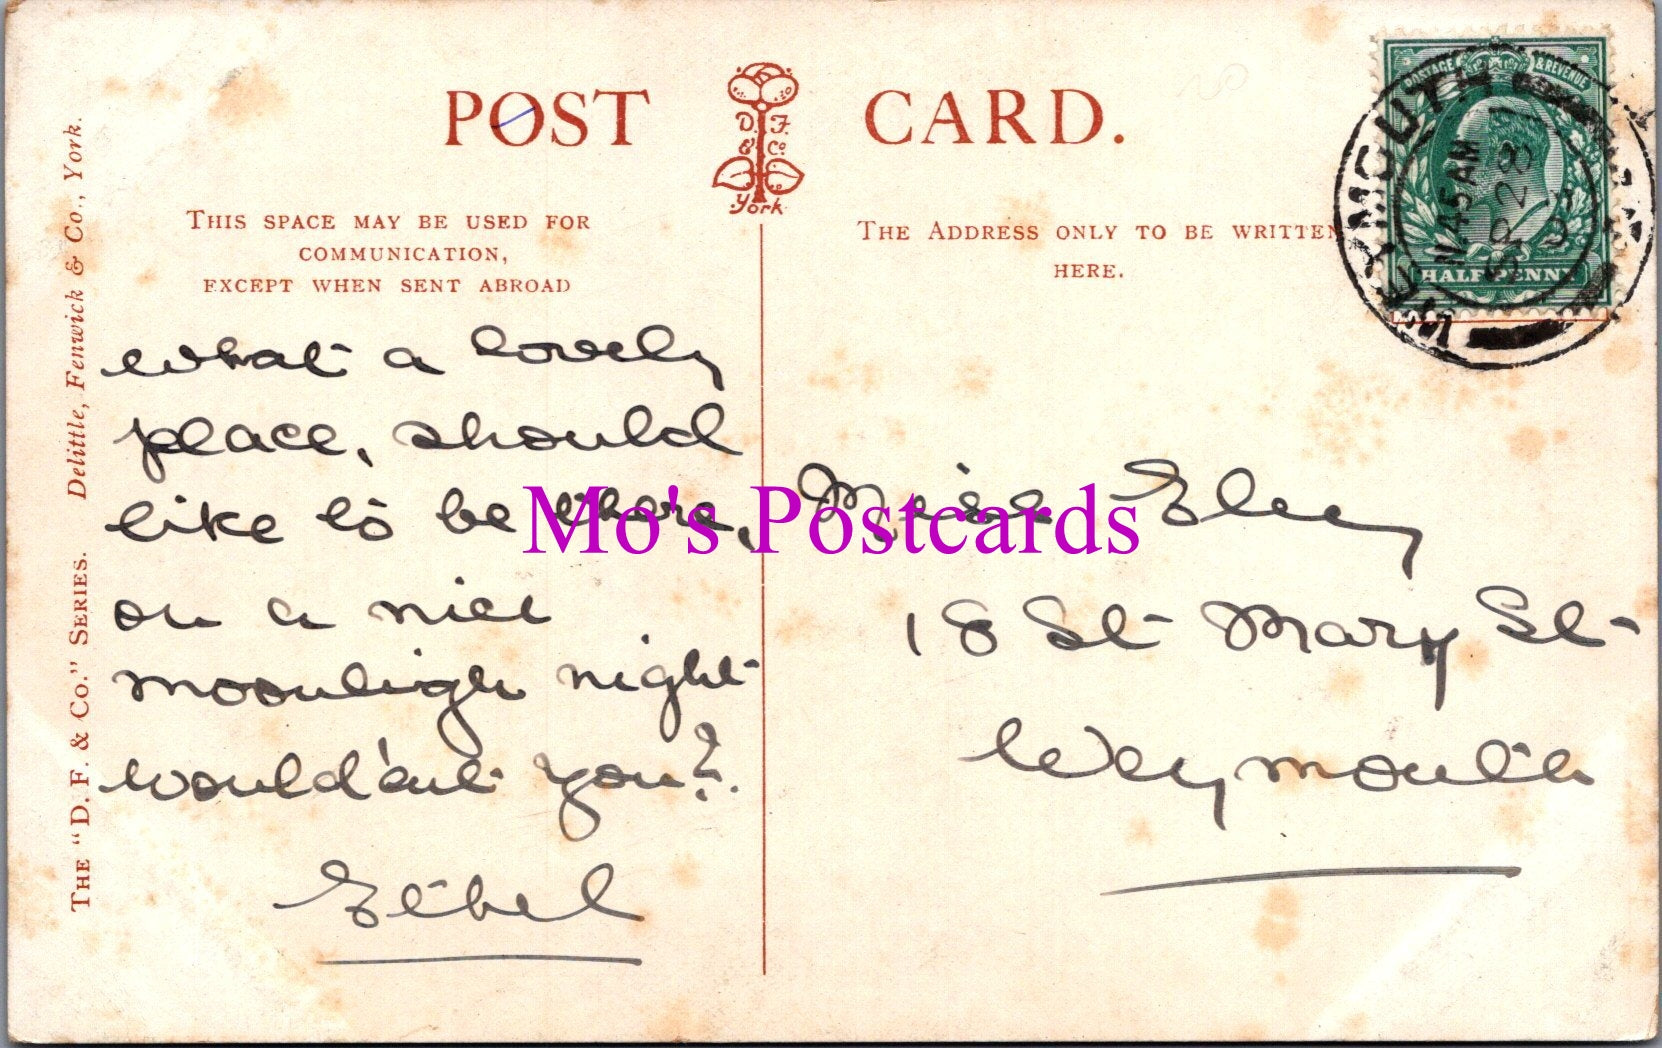 POST CARD.
D. F. & Co. York
THIS SPACE MAY BE USED FOR
COMMUNICATION,
EXCEPT WHEN SENT ABROAD
THE ADDRESS ONLY TO BE WRITTEN
HERE.
POSTAGE & REVENUE
HALFPENNY
WEYMOUTH
11.45 AM
SP 28
THE "D. F. & CO." SERIES. Delittle, Fenwick & Co., York.
what a lovely
place, should
like to be there,
on a nice
moonligh night
would'ent you?.
Ethel
Miss Eley
18 St Mary St
Weymouth
Mo's Postcards